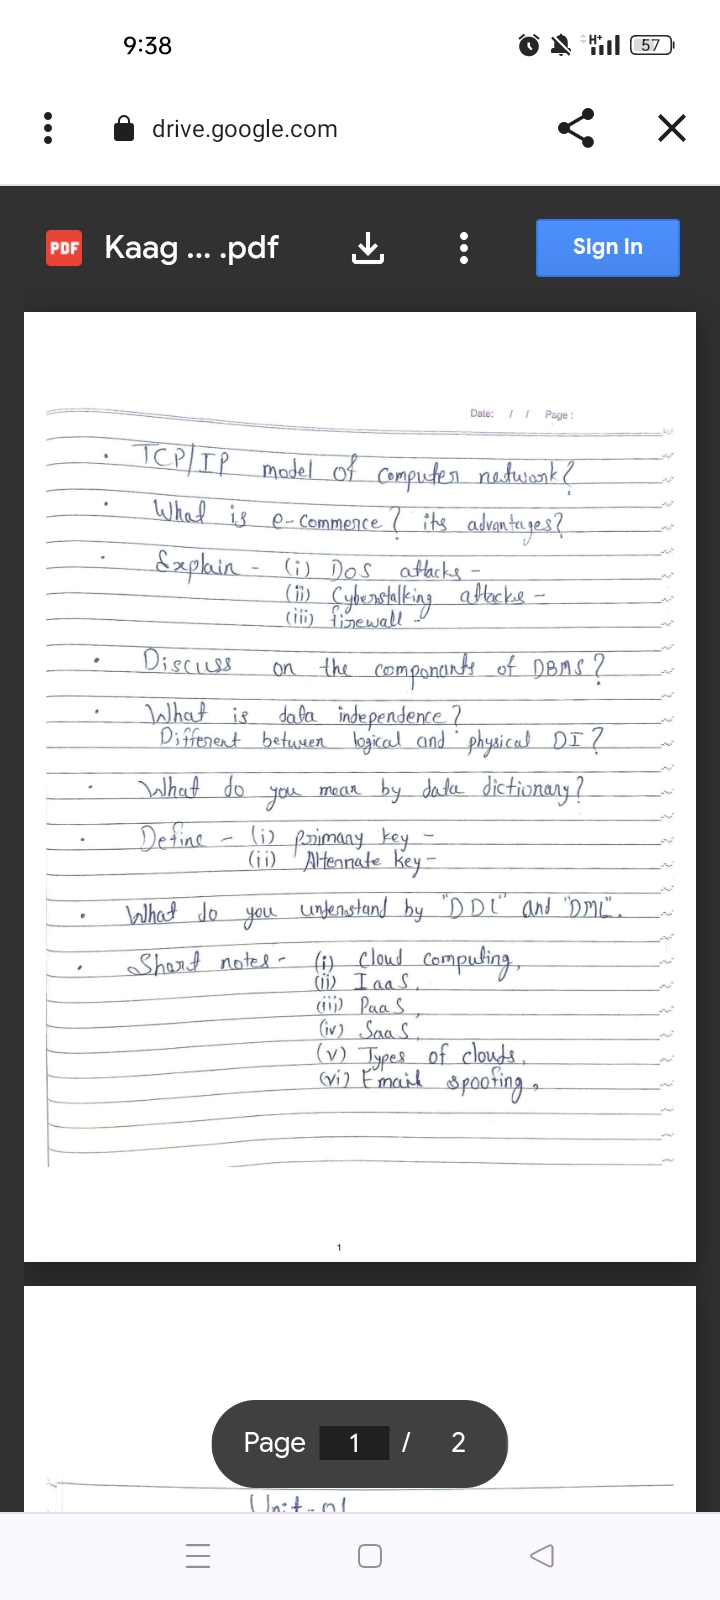 9:38
H+
57
drive.google.com
PDF Kaag ... .pdf
Sign in
Date: / / Page :
• TCP/IP model of computer network?
• What is e-commerce? its advantages?
• Explain - (i) DOS attacks -
(ii) Cyberstalking attacks -
(iii) firewall -
• Discuss on the componants of DBMS?
• What is data independence?
Different between logical and physical DI?
• What do you mean by data dictionary?
• Define - (i) primary key -
(ii) Alternate key -
• What do you understand by "DDL" and "DML".
• Short notes - (i) Cloud computing,
(ii) IaaS,
(iii) PaaS,
(iv) SaaS,
(v) Types of clouds,
(vi) Email spoofing.
1
Page 1 / 2
Unit-01